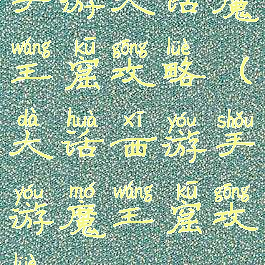 手游大话魔
wáng kū gōng lüè
王窟攻略（
dà huà xī yóu shǒu
大话西游手
yóu mó wáng kū gōng
游魔王窟攻
lüè